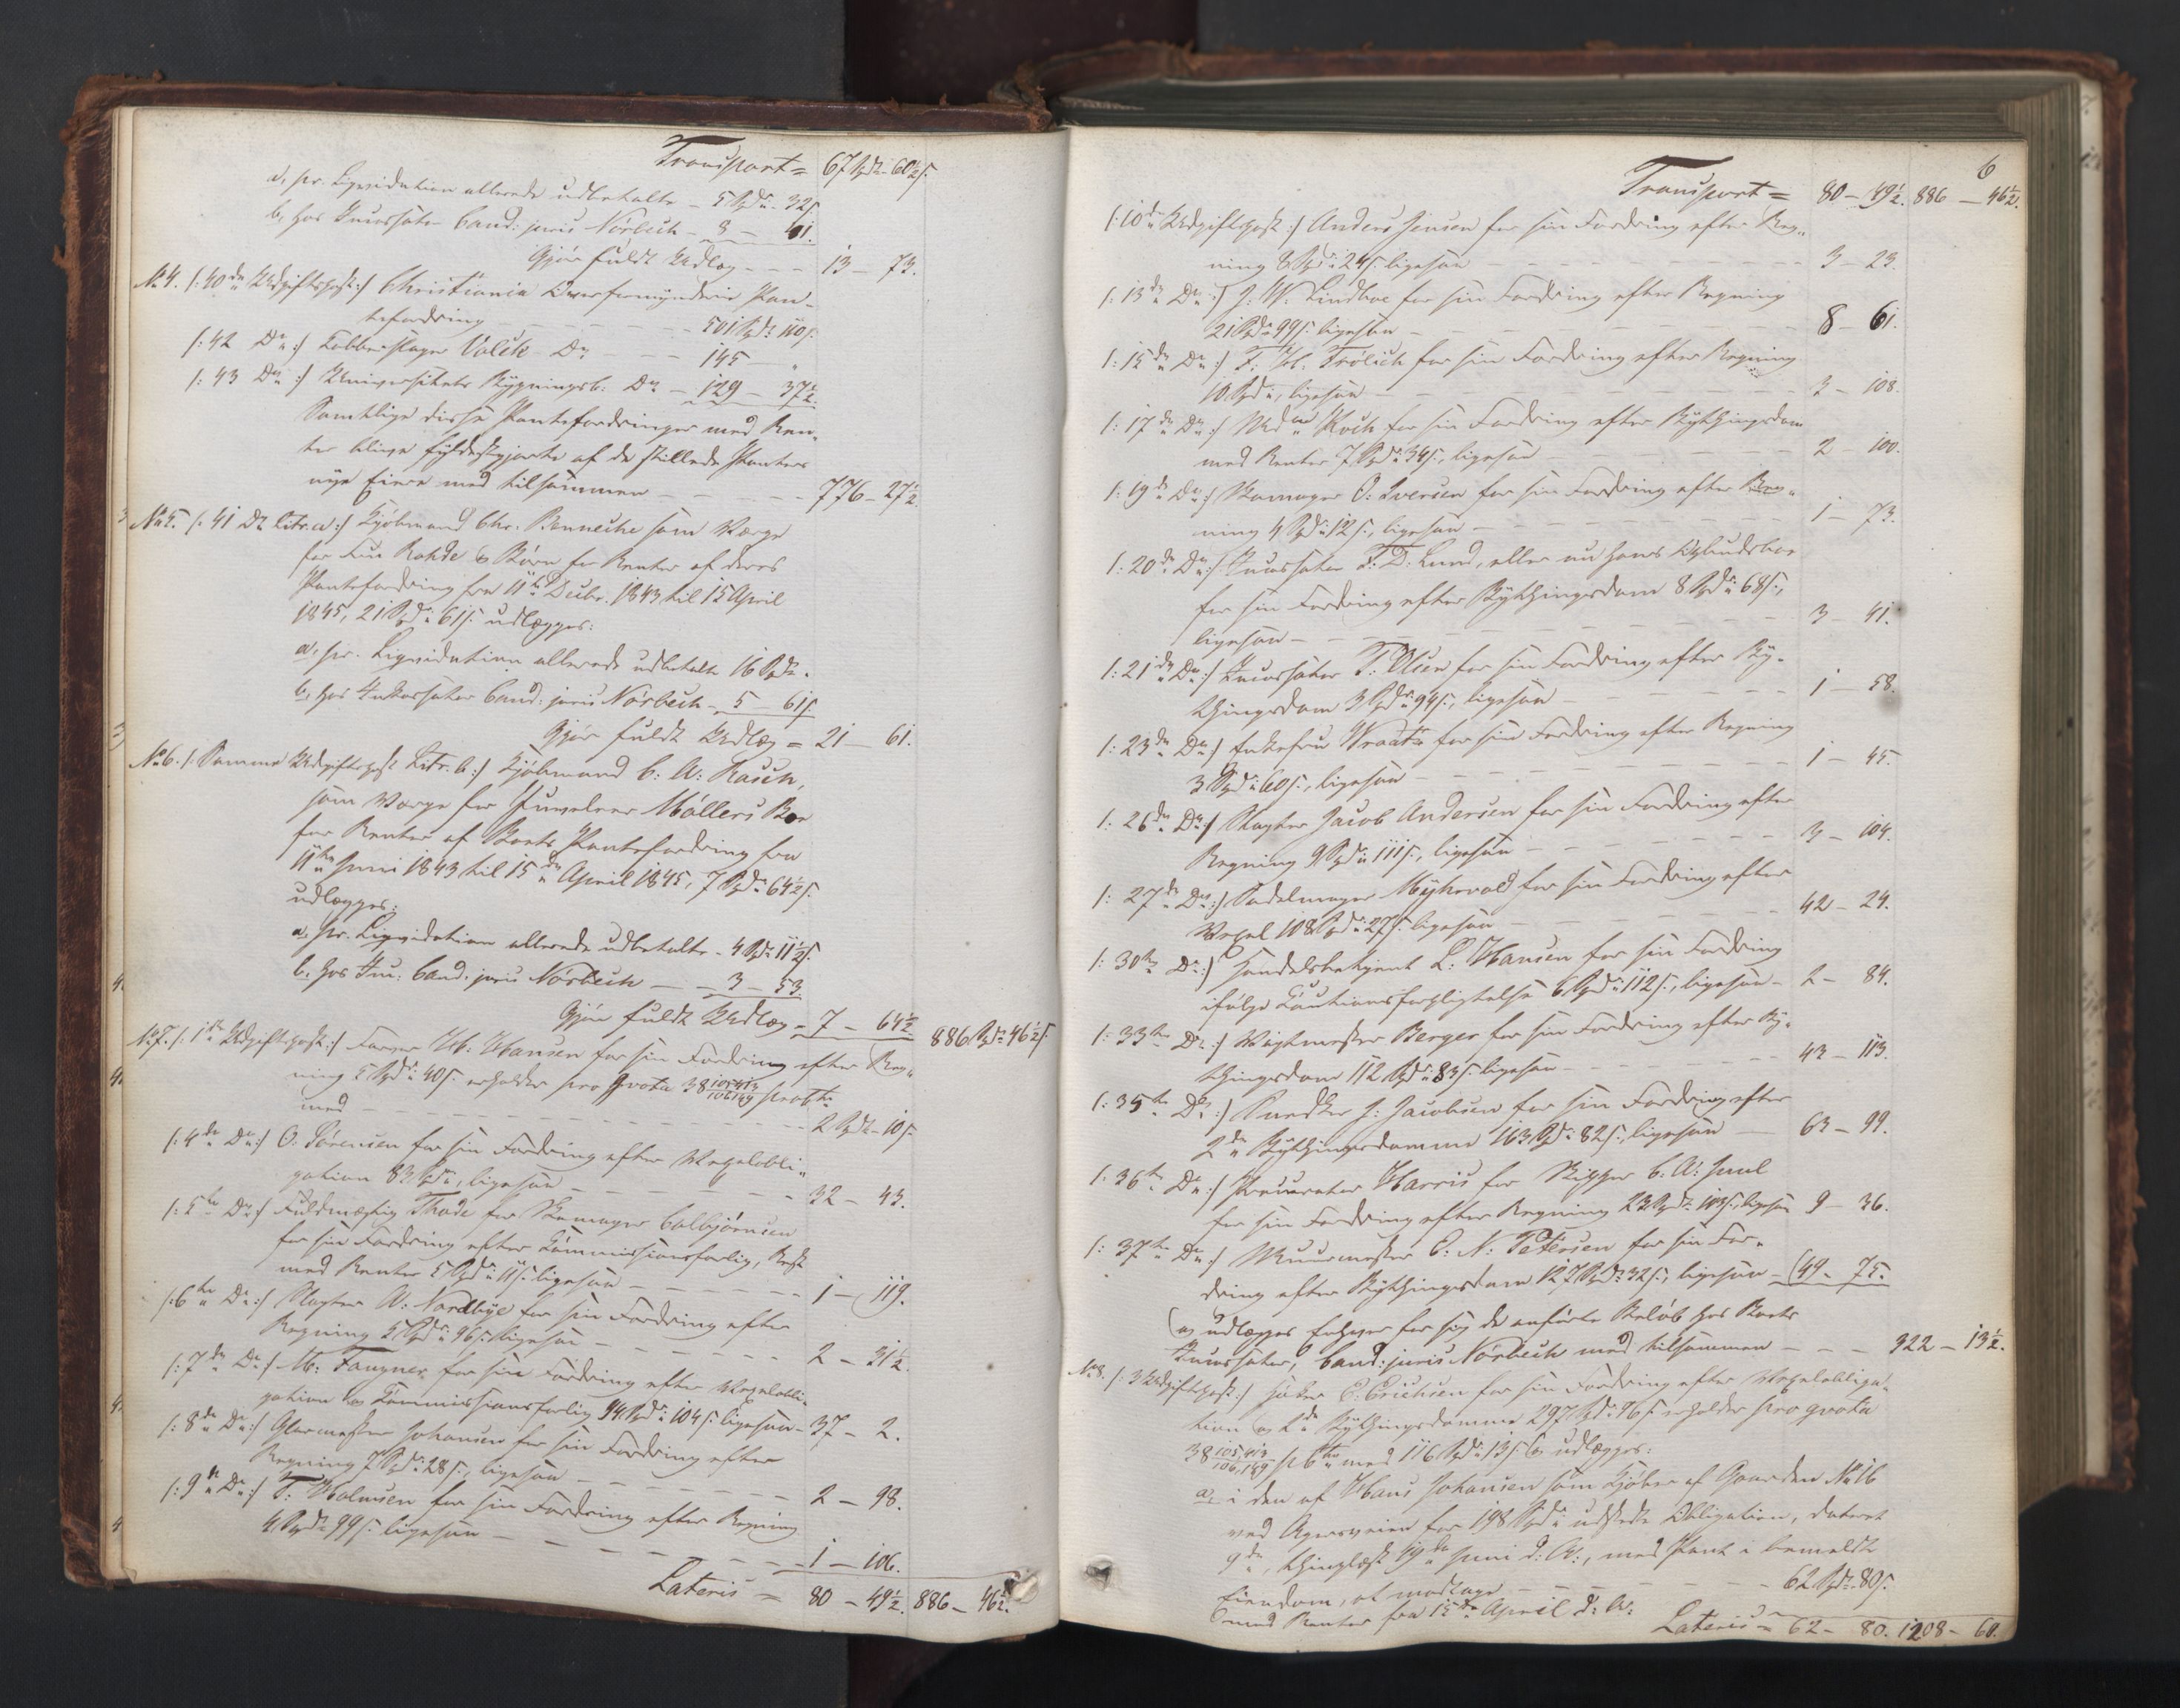 Transport = 67 Spd. 60½ s.
a, pr. Liqvidation allerede udbetalte - 5 Spd. 32 s.
b, hos Incassator Cand: juris Nörbech - 8 - 41.
Gjör fuldt Udlæg - - - 13 - 73.
No 4. /: 40de Udgiftspost :/ Christiania Overformynderie Pan-
tefordring - - - 501 Spd. 110 s.
/: 42 Do :/ Kobberslager Valck Do - - - 145 - "
/: 43 Do :/ Universitets Bygningsk: Do - 129 - 37½.
Samtlige disse Pantefordringer med Ren-
ter blive fyldestgjorte af de stillede Panters
nye Eiere med tilsammen - - - 776 - 27½.
No 5. /: 41 Do Litr. a :/ Kjöbmand Chr. Benneche som Værge
for Frue Rohde & Börn for Renter af deres
Pantefordring fra 11te Decbr. 1843 til 15 April
1845, 21 Spd. 61 s. udlægges:
a, pr. Liqvidation allerede udbetalt 16 Spd.
b, hos Inkassator Cand: juris Nörbech - 5 - 61 s.
Gjör fuldt Udlæg = 21 - 61.
No 6. /: Samme Udgiftspost Litr. b :/ Kjöbmand C: A: Rasch,
som Værge for Juveleer Möllers Boe
for Renter af Boets Pantefordring fra
11te Juni 1843 til 15de April 1845, 7 Spd. 64½ s.
udlægges:
a, pr. Liqvidation allerede udbetalte - 4 Spd. 11½ s.
b, hos Inc. Cand: juris Nörbech - - 3 - 53
Gjör fuldt Udlæg - 7 - 64½ 886 Spd. 46½ s.
No 7. /: 1ste Udgiftspost :/ Farver H: Hansen for sin Fordring efter Reg-
ning 5 Spd. 40 s. erholder pro qvota 38 105413/106149 pro Cto
med - - - 2 Spd. 10 s.
/: 4de Do :/ O: Sörensen for sin Fordring efter Vexelobli-
gation 83 Spd., ligesaa - - - 32 - 43.
/: 5te Do :/ Fuldmægtig Thode for Skomager Colbjörnsen
for sin Fordring efter Kommissionsforlig, Rest
med Renter 5 Spd. 11 s. ligesaa - - - 1 - 119.
/: 6te Do :/ Slagter A: Nordbye for sin Fordring efter
Regning 5 Spd. 96 s. ligesaa - - - 2 - 31½.
/: 7de Do :/ M: Faugner for sin Fordring efter Vexelobli-
gation og Kommissionsforlig 94 Spd. 104 s. ligesaa - 37 - 2.
/: 8de Do :/ Glarmester Johansen for sin Fordring efter
Regning 7 Spd. 28 s., ligesaa - - - 2 - 98.
/: 9de Do :/ T: Halvorsen for sin Fordring efter Regning
4 Spd. 99 s. ligesaa - - - 1 - 106.
Lateris = 80 - 49½. 886 - 46½.
6
Transport = 80 - 49½. 886 - 46½.
/: 10de Udgiftspost :/ Anders Jensen for sin Fordring efter Reg-
ning 8 Spd. 24 s. ligesaa - - - 3 - 23.
/: 13de Do :/ J: W: Lindboe for sin Fordring efter Regning
21 Spd. 99 s. ligesaa - - - 8 - 61.
/: 15de Do :/ F: H: Frölich for sin Fordring efter Regning
10 Spd., ligesaa - - - 3 - 108.
/: 17de Do :/ Mad. Koch for sin Fordring efter Bythingsdom
med Renter 7 Spd. 34 s., ligesaa - - - 2 - 100.
/: 19de Do :/ Skomager O: Iversen for sin Fordring efter Reg-
ning 4 Spd. 12 s., ligesaa - - - 1 - 73.
/: 20de Do :/ Incassator T: D: Lund, eller nu hans Opbudsboe
for sin Fordring efter Bythingsdom 8 Spd. 68 s.,
ligesaa - - - 3 - 41.
/: 21de Do :/ Incassator T: Olsen for sin Fordring efter By-
thingsdom 3 Spd. 94 s., ligesaa - - - 1 - 58.
/: 23de Do :/ Enkefru Wraatz for sin Fordring efter Regning
3 Spd. 60 s., ligesaa - - - 1 - 45.
/: 26de Do :/ Slagter Jacob Andersen for sin Fordring efter
Regning 9 Spd. 111 s., ligesaa - - - 3 - 104.
/: 27de Do :/ Sadelmager Myhrvold for sin Fordring efter
Vexel 108 Spd. 27 s. ligesaa - - - 42 - 24.
/: 30te Do :/ Handelsbetjent L: Hansen for sin Fordring
ifölge Kautionsforpligtelse 6 Spd. 112 s., ligesaa - 2 - 84.
/: 33te Do :/ Vægtmester Berger for sin Fordring efter By-
thingsdom 112 Spd. 83 s. ligesaa - - - 43 - 113.
/: 35te Do :/ Snedker J: Jacobsen for sin Fordring efter
2de Bythingsdomme 163 Spd. 82 s., ligesaa - 63 - 99.
/: 36te Do :/ Procurator Harris for Skipper C: A: Juul
for sin Fordring efter Regning 23 Spd. 103 s., ligesaa 9 - 36.
/: 37te Do :/ Muurmester C: N: Petersen for sin For-
dring efter Bythingsdom 127 Spd. 32 s., ligesaa - 49 - 75.
og udlægges Enhver for sig de anförte Belöb hos Boets
Incassator, Cand: juris Nörbech med tilsammen - - - 322 - 13½.
No 8. /: 3 Udgiftspost :/ E: Erichsen for sin Fordring efter Vexelobliga-
tion og 2de Bythingsdomme 297 Spd. 96 s. erholder pro qvota
38 105,413/106,149 p Cto med 116 Spd. 13 s. & udlægges:
a, i den af Hans Johansen som Kjöber af Gaarden No 16
ved Agersveien for 198 Spd. udstedte Obligation, dateret
9de, thinglæst 19de Juni d: A:, med Pant i bemeldte
Eiendom, at modtage - - - 62 Spd. 80 s.
med Renter fra 15de April d: A:
Lateris = 62 - 80. 1208 - 60.